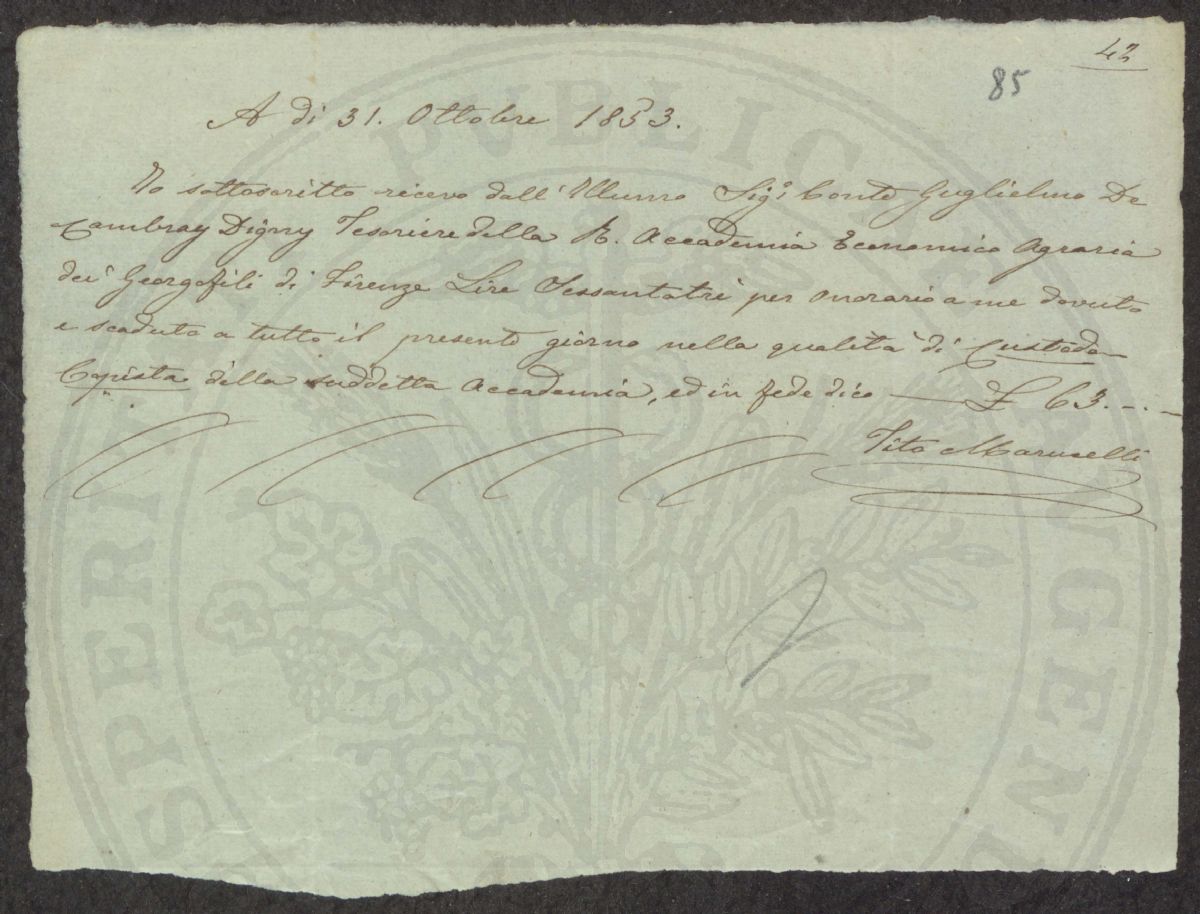 42
85
A dì 31. Ottobre 1853.
Io sottoscritto ricevo dall' Illumo Sigr Conte Guglielmo De
Cambray Digny Tesoriere della R. Accademia Economico Agraria
dei Georgofili di Firenze Lire Sessantatrè per onorario a me dovuto
e scaduto a tutto il presente giorno nella qualità di Custode
Copista della suddetta Accademia, ed in fede dico — £ 63. - . -
Tito Marucelli
PROSPERITATI PVBLICAE AVGENDAE